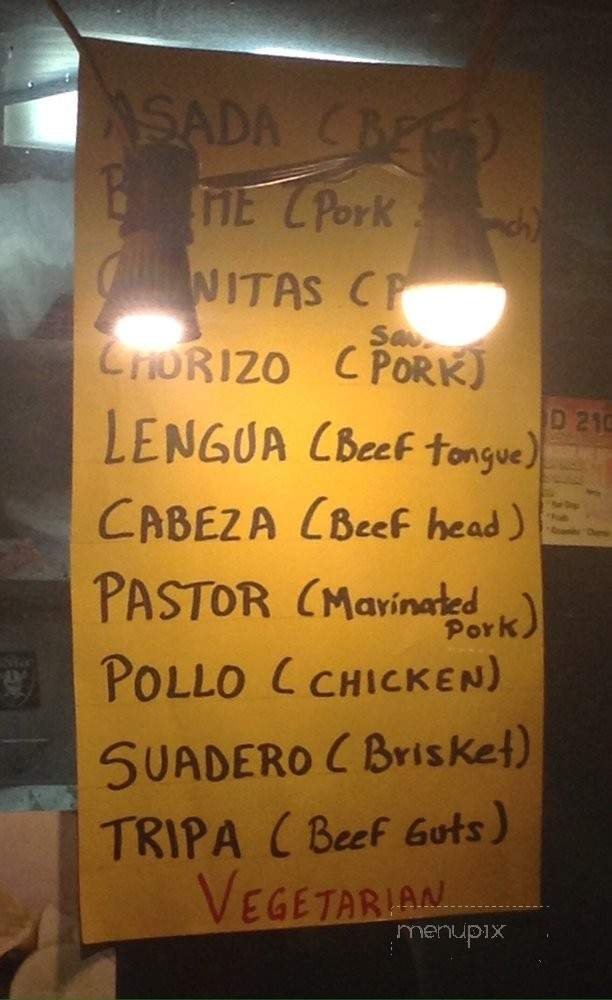 ASADA (BEEF)
(Pork
(
CHORIZO (Sausage PORK)
LENGUA (Beef tongue)
CABEZA (Beef head)
PASTOR (Marinated
Pork)
POLLO (CHICKEN)
SUADERO (Brisket)
TRIPA (Beef Guts)
VEGETARIAN
menupix